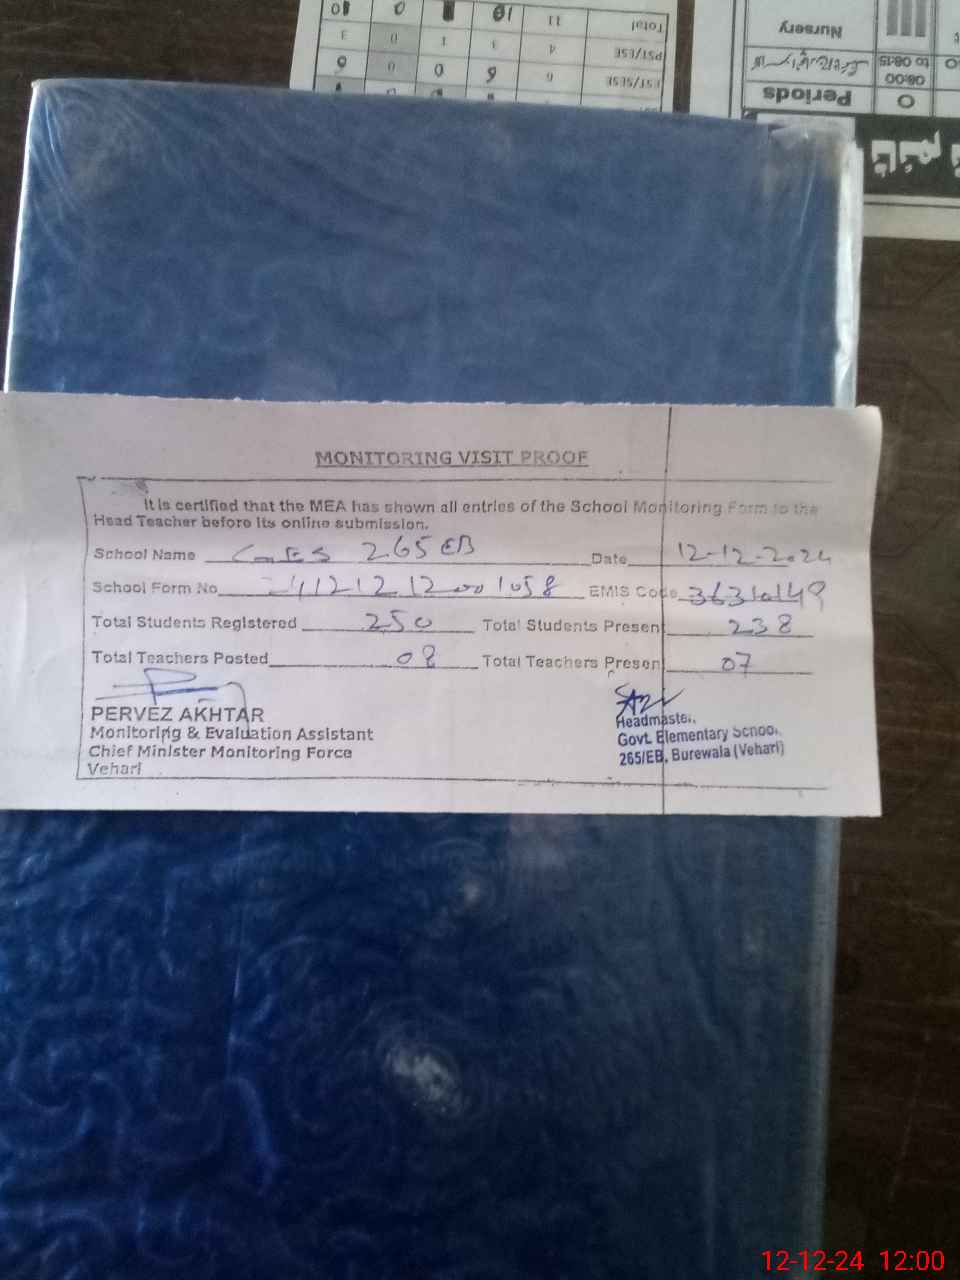 Total 11 10 0 10
PST/ESE 4 3 1 0 3
EST/SESE 6 6 0 0 6
Nursery
08:00 to 08:15
Periods 0
MONITORING VISIT PROOF
It is certified that the MEA has shown all entries of the School Monitoring Form to the
Head Teacher before its online submission.
School Name GES 265 EB Date 12-12-2024
School Form No 2412121200 1058 EMIS Code 36310149
Total Students Registered 250 Total Students Present 238
Total Teachers Posted 08 Total Teachers Present 07
PERVEZ AKHTAR
Monitoring & Evaluation Assistant
Chief Minister Monitoring Force
Vehari
Headmaster,
Govt. Elementary School,
265/EB, Burewala (Vehari)
12-12-24 12:00